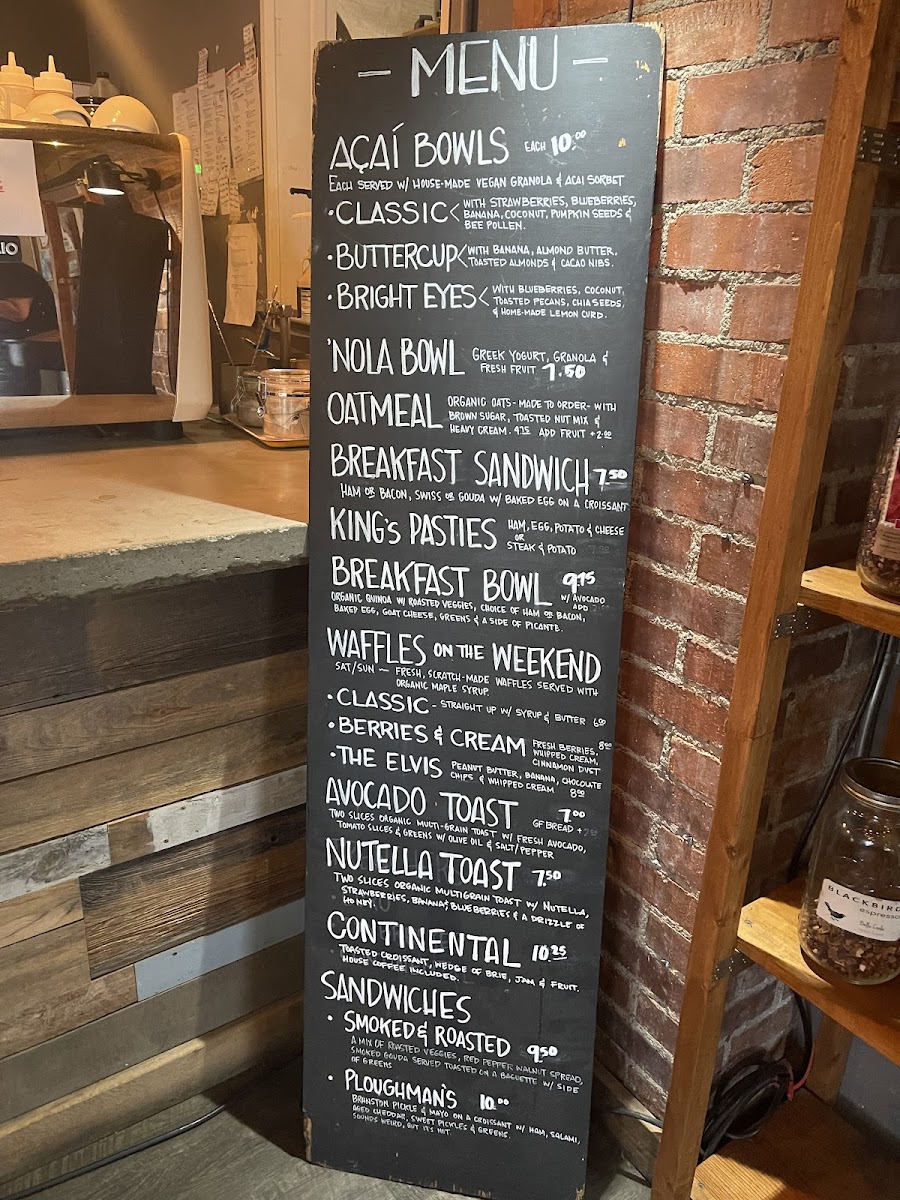 — MENU —
AÇAÍ BOWLS EACH 10.00
EACH SERVED W/ HOUSE-MADE VEGAN GRANOLA & ACAI SORBET
• CLASSIC < WITH STRAWBERRIES, BLUEBERRIES,
BANANA, COCONUT, PUMPKIN SEEDS &
BEE POLLEN.
• BUTTERCUP < WITH BANANA, ALMOND BUTTER,
TOASTED ALMONDS & CACAO NIBS.
• BRIGHT EYES < WITH BLUEBERRIES, COCONUT,
TOASTED PECANS, CHIA SEEDS,
& HOME-MADE LEMON CURD.
'NOLA BOWL GREEK YOGURT, GRANOLA &
FRESH FRUIT 7.50
OATMEAL ORGANIC OATS - MADE TO ORDER - WITH
BROWN SUGAR, TOASTED NUT MIX &
HEAVY CREAM. 4.75 ADD FRUIT +2.00
BREAKFAST SANDWICH 7.50
HAM OR BACON, SWISS OR GOUDA W/ BAKED EGG ON A CROISSANT
KING'S PASTIES HAM, EGG, POTATO & CHEESE
OR
STEAK & POTATO
BREAKFAST BOWL 9.75
W/ AVOCADO
ADD
ORGANIC QUINOA W/ ROASTED VEGGIES, CHOICE OF HAM OR BACON,
BAKED EGG, GOAT CHEESE, GREENS & A SIDE OF PICANTE.
WAFFLES ON THE WEEKEND
SAT/SUN — FRESH, SCRATCH-MADE WAFFLES SERVED WITH
ORGANIC MAPLE SYRUP.
• CLASSIC - STRAIGHT UP W/ SYRUP & BUTTER 6.00
• BERRIES & CREAM FRESH BERRIES, 8.00
WHIPPED CREAM,
CINNAMON DUST
• THE ELVIS PEANUT BUTTER, BANANA, CHOCOLATE
CHIPS & WHIPPED CREAM 8.00
AVOCADO TOAST 7.00
GF BREAD +
TWO SLICES ORGANIC MULTI-GRAIN TOAST W/ FRESH AVOCADO,
TOMATO SLICES & GREENS W/ OLIVE OIL & SALT/PEPPER
NUTELLA TOAST 7.50
TWO SLICES ORGANIC MULTIGRAIN TOAST W/ NUTELLA,
STRAWBERRIES, BANANA & BLUEBERRIES & A DRIZZLE OF
HONEY.
CONTINENTAL 10.25
TOASTED CROISSANT, WEDGE OF BRIE, JAM & FRUIT.
HOUSE COFFEE INCLUDED.
SANDWICHES
• SMOKED & ROASTED 9.50
A MIX OF ROASTED VEGGIES, RED PEPPER WALNUT SPREAD,
SMOKED GOUDA SERVED TOASTED ON A BAGUETTE W/ SIDE
OF GREENS
• PLOUGHMAN'S 10.00
BRANSTON PICKLE & MAYO ON A CROISSANT W/ HAM, SALAMI,
AGED CHEDDAR, SWEET PICKLES & GREENS.
SOUNDS WEIRD, BUT IT'S NOT.
BLACKBIRD
espresso